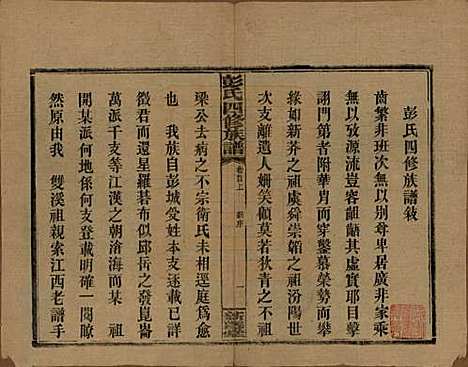 彭氏四修族譜敘
齒繁非班次無以別尊卑居廣非家乘
無以攷源流豈容齟齬其虛實耶目擊
詡門第者附而穿鑿慕榮勢而攀
緣如新莽之祖虞舜崇韜之祖汾陽世
次支離遺人姍笑傾莫若狄青之於
梁公去病之不宗衞氏未相逕庭爲愈
也 我族自彭城受姓本支迷載已詳
徵君而星羅碁布似邱岳之發崑崙
萬派千支等江漢之朝滄海而某 祖
開某派何地係何支登載明晰一閱瞭
然原由我 雙溪祖親索江西老譜手
彭氏四修族譜
卷首上
新序